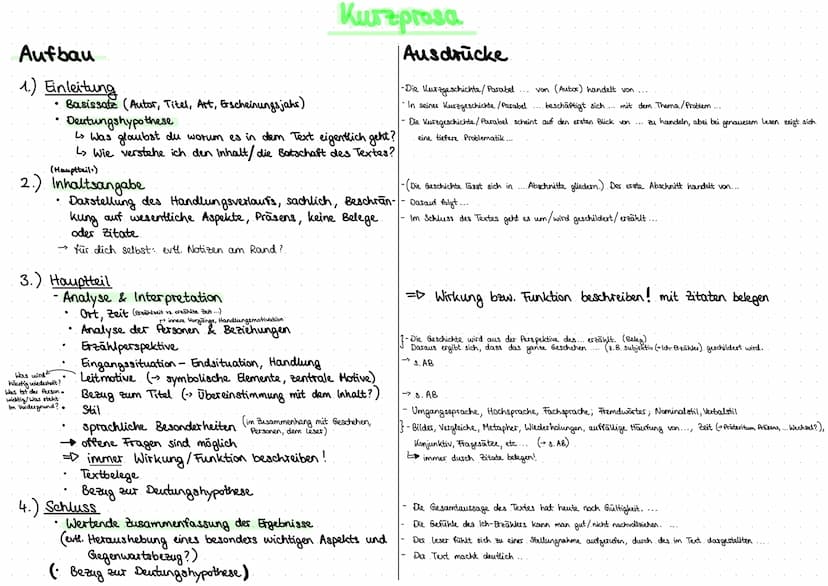 Kurzprosa
Aufbau
1.) Einleitung
• Basissatz (Autor, Titel, Art, Erscheinungsjahr)
• Deutungshypothese
↳ Was glaubst du worum es in dem Text eigentlich geht?
↳ Wie verstehe ich den Inhalt/die Botschaft des Textes?
(Hauptteil)
2.) Inhaltsangabe
• Darstellung des Handlungsverlaufs, sachlich, Beschrän-
kung auf wesentliche Aspekte, Präsens, keine Belege
oder Zitate
→ für dich selbst: evtl. Notizen am Rand?
3.) Hauptteil
- Analyse & Interpretation
• Ort, Zeit (Erzählzeit vs erzählte Zeit ...)
→ innere Vorgänge, Handlungsmotivation
• Analyse der Personen & Beziehungen
• Erzählperspektive
• Eingangssituation - Endsituation, Handlung
• Leitmotive (→ symbolische Elemente, zentrale Motive)
Was wird
häufig wiederholt?
Was ist der Person
wichtig/was steht
im Vordergrund?
• Bezug zum Titel (→ Übereinstimmung mit dem Inhalt?)
• Stil
• sprachliche Besonderheiten (im Zusammenhang mit Geschehen,
Personen, dem Leser)
→ offene Fragen sind möglich
⇒ immer Wirkung/Funktion beschreiben!
• Textbelege
• Bezug zur Deutungshypothese
4.) Schluss
• Wertende Zusammenfassung der Ergebnisse
(evtl. Heraushebung eines besonders wichtigen Aspekts und
Gegenwartsbezug?)
(• Bezug zur Deutungshypothese)
Ausdrücke
- Die Kurzgeschichte/Parabel ... von (Autor) handelt von ...
- In seiner Kurzgeschichte/Parabel ... beschäftigt sich ... mit dem Thema/Problem ...
- Die Kurzgeschichte/Parabel scheint auf den ersten Blick von ... zu handeln, aber bei genauerem Lesen zeigt sich
eine tiefere Problematik ...
- (Die Geschichte lässt sich in ... Abschnitte gliedern.) Der erste Abschnitt handelt von...
- Darauf folgt ...
- Im Schluss des Textes geht es um/wird geschildert/erzählt ...
⇒ Wirkung bzw. Funktion beschreiben! mit Zitaten belegen
- Die Geschichte wird aus der Perspektive des... erzählt. (Beleg)
Daraus ergibt sich, dass das ganze Geschehen ... (z.B. subjektiv (→Ich-Erzähler) geschildert wird.
→ s. AB
→ s. AB
- Umgangssprache, Hochsprache, Fachsprache, Fremdwörter, Nominalstil, Verbalstil
- Bilder, Vergleiche, Metapher, Wiederholungen, auffällige Häufung von..., Zeit (→Präteritum, Präsens, ... Wechsel?),
Konjunktiv, Fragesätze, etc... (→ s. AB)
↳ immer durch Zitate belegen!
- Die Gesamtaussage des Textes hat heute noch Gültigkeit. ...
- Die Gefühle des Ich-Erzählers kann man gut/nicht nachvollziehen. ...
- Der Leser fühlt sich zu einer Stellungnahme aufgerufen, durch des im Text dargestellten ...
- Der Text macht deutlich ...